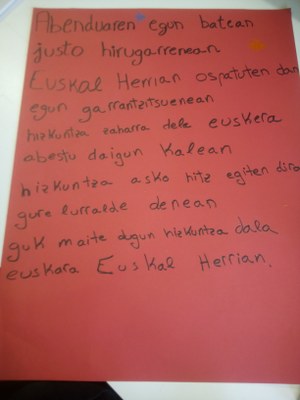 Abenduaren egun batean
justo hirugarrenean
Euskal Herrian ospatuten dan
egun garrantzitsuenean
hizkuntza zaharra dela euskera
abestu daigun kalean
hizkuntza asko hitz egiten dira
gure lurralde denean
guk maite dugun hizkuntza dala
euskara Euskal Herrian.